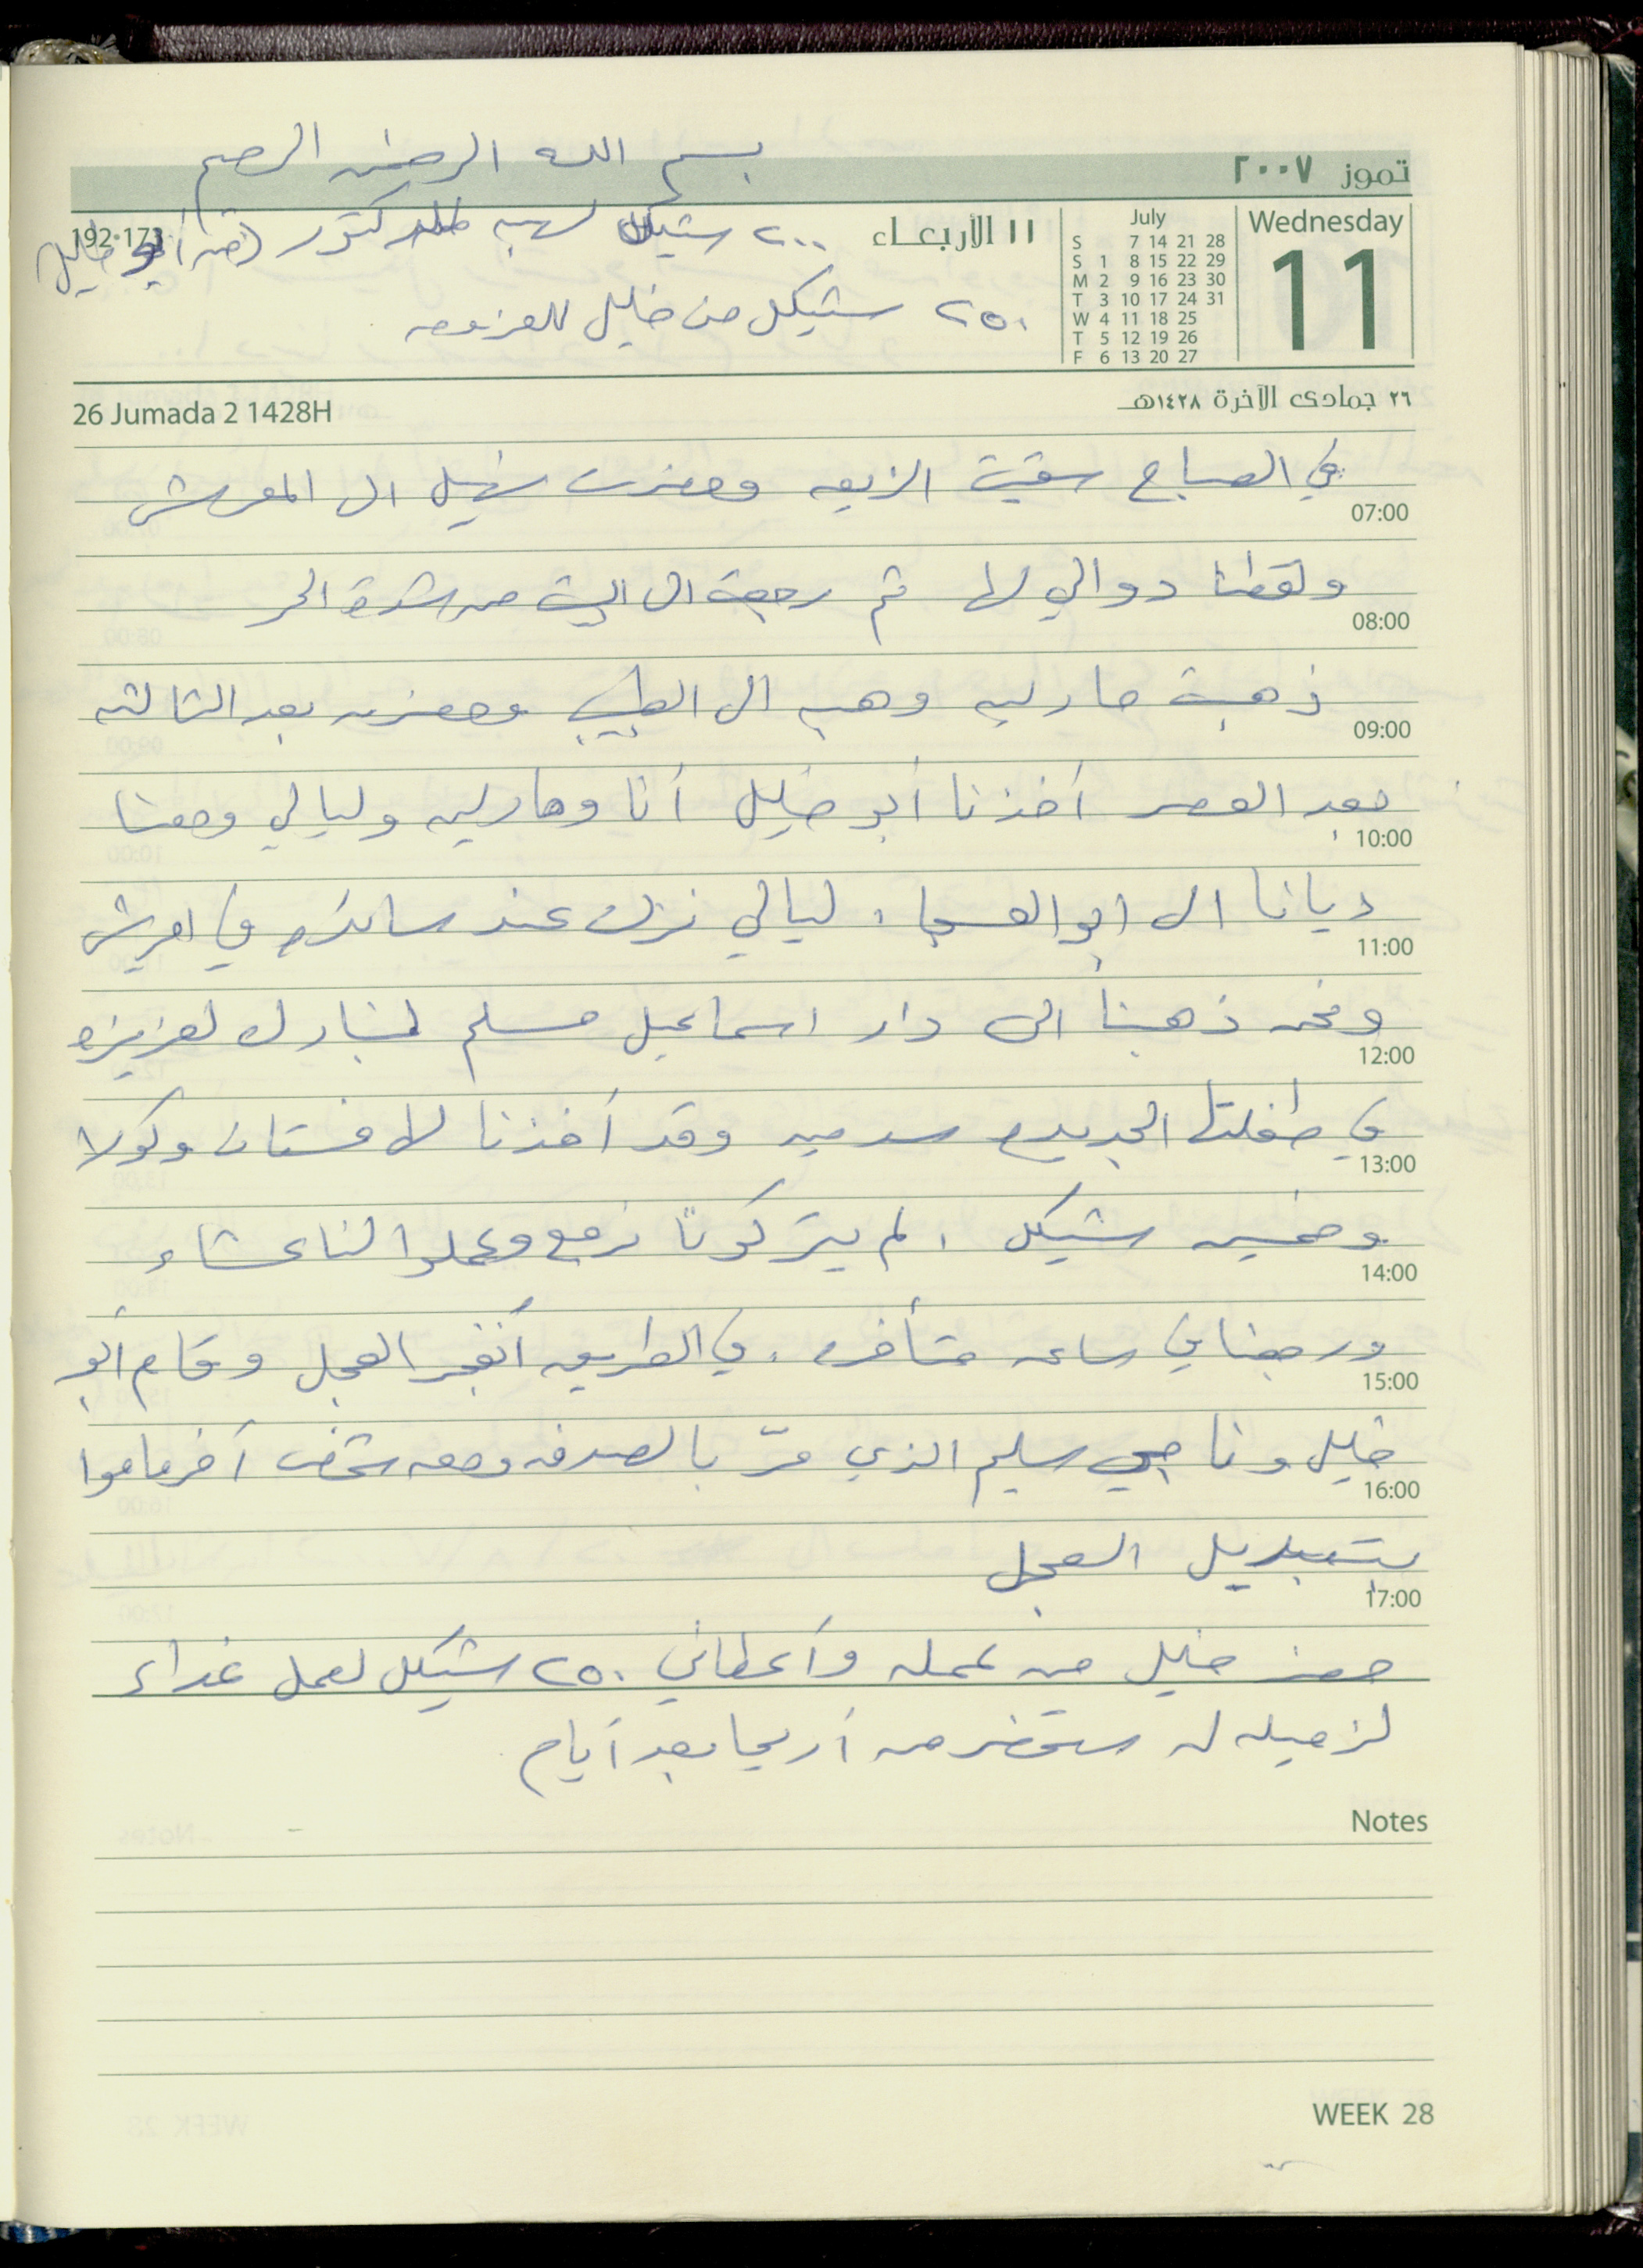 بسم الله الرحمن الرحيم
تموز ٢٠٠٧
Wednesday
11
July
S 7 14 21 28
S 1 8 15 22 29
M 2 9 16 23 30
T 3 10 17 24 31
W 4 11 18 25
T 5 12 19 26
F 6 13 20 27
١١ الأربعاء
192-173
٢٠٠ شيكل لهبه للدكتور (من أبو خليل)
٢٥٠ شيكل من خليل للعزومه
٢٦ جمادى الآخرة ١٤٢٨هـ
26 Jumada 2 1428H
في الصباح سقيت الزريعه وحضرت نهيل الى المعرش
07:00
ولقطنا دوالي لها ثم رجعت الى البيت من شدة الحر
08:00
ذهبت مارلين وهبه الى الطبيب وحضرن بعد الثالثه
09:00
بعد العصر أخذنا أبو خليل أنا ومارلين وليالي ومعنا
10:00
ديانا الى ابو العسجا، ليالي نزلت عند ساندره في
11:00
ونحن ذهبنا الى دار اسماعيل مسلم لنبارك لعزيزه
12:00
في طفلتها الجديده وقد أخذنا لها فستان وكولا
13:00
وخمسين شيكل . لم يتركونا نرجع وعملوا لنا عشاء
14:00
ورجعنا في ساعه متأخره. في الطريق أنفجر العجل وقام أبو
15:00
خليل وناجي سليم الذي مرّ بالصدفه ومعه شخص آخر قاموا
16:00
بتبديل العجل
17:00
حضر خليل من عمله وأعطاني ٢٥٠ شيكل لعمل غداء
لزميله له ستحضر من أريحا بعد أيام
Notes
WEEK 28